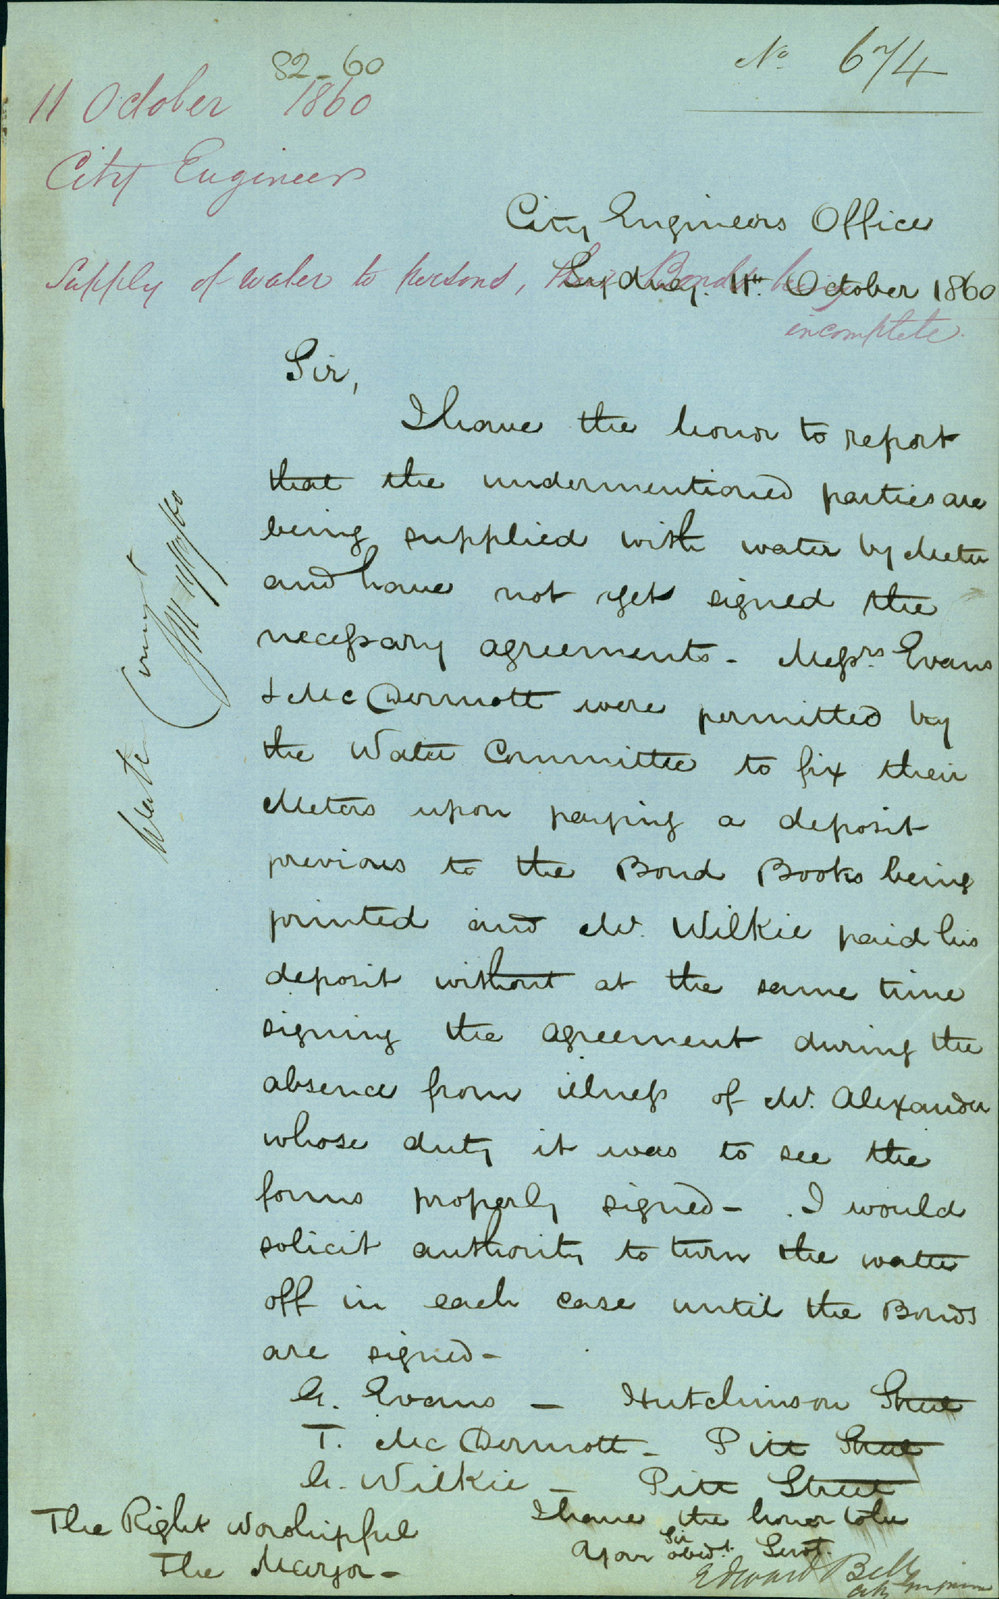 82-60
No 674
11 October 1860
City Engineer
City Engineers Office
Supply of water to persons, their Bonds being
incomplete.
Sydney. 11th October 1860
Sir,
I have the honor to report
that the undermentioned parties are
being supplied with water by Meter
and have not yet signed the
necessary agreements - Messrs Evans
& McDermott were permitted by
the Water Committee to fix their
Meters upon paying a deposit
previous to the Bond Books being
printed and Mr. Wilkie paid his
deposit without at the same time
signing the agreement during the
absence from illness of Mr. Alexander
whose duty it was to see the
forms properly signed - I would
solicit authority to turn the water
off in each case until the Bonds
are signed -
G. Evans - Hutchinson Street
T. McDermott - Pitt Street
G. Wilkie - Pitt Street
I have the honor to be
Sir
Your obedt. Servt.
Edward Bell
City Engineer
The Right Worshipful
The Mayor -
Water Comt